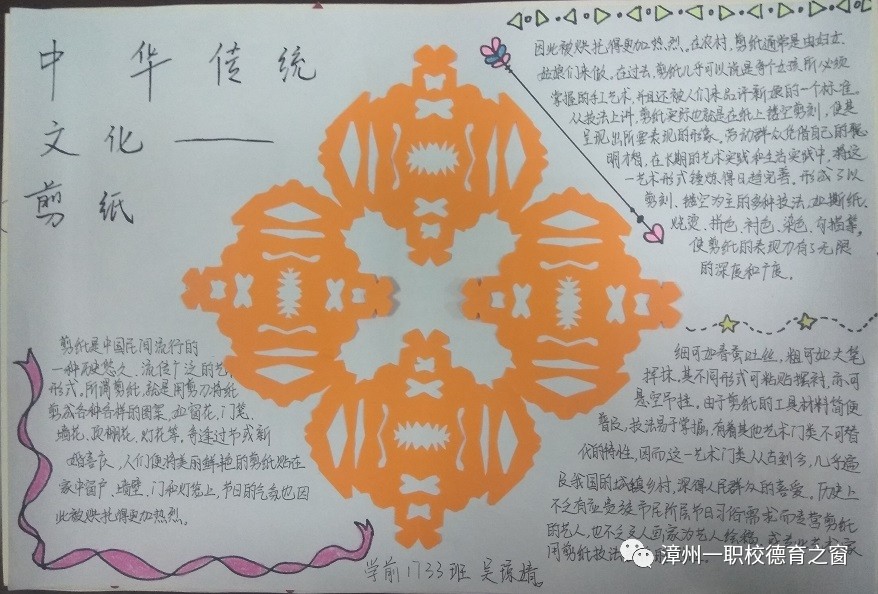 中华传统
文化——
剪纸
剪纸是中国民间流行的
一种历史悠久、流传广泛的艺
形式。所谓剪纸,就是用剪刀将纸
剪成各种各样的图案,如窗花、门笺、
墙花、顶棚花、灯花等,每逢过节或新
婚喜庆,人们便将美丽鲜艳的剪纸贴在
家中窗户、墙壁、门和灯笼上,节日的气氛也因
此被烘托得更加热烈。
因此被烘托得更加热烈。在农村,剪纸通常是由妇女、
姑娘们来做。在过去,剪纸几乎可以说是每个女孩所必须
掌握的手工艺术,并且还被人们来品评新娘的一个标准。
从技法上讲,剪纸实际也就是在纸上镂空剪刻,使其
呈现出所要表现的形象。劳动群众凭借自己的聪
明才智,在长期的艺术实践和生活实践中,将这
一艺术形式锤炼得日趋完善。形成了以
剪刻、镂空为主的多种技法,如撕纸、
烧烫、拼色、衬色、染色、勾描等,
使剪纸的表现力有了无限
的深度和广度。
细可如春蚕吐丝,粗可如大笔
挥抹。其不同形式可粘贴摆衬,亦可
悬空吊挂。由于剪纸的工具材料简便
普及,技法易于掌握,有着其他艺术门类不可替
代的特性,因而这一艺术门类从古到今,几乎遍
及我国的城镇乡村,深得人民群众的喜爱。历史上
不乏有应贵族市民所居节日习俗需求而经营剪纸
的艺人,也不乏文人画家
用剪纸技法
学前1733班 吴琼婧
漳州一职校德育之窗